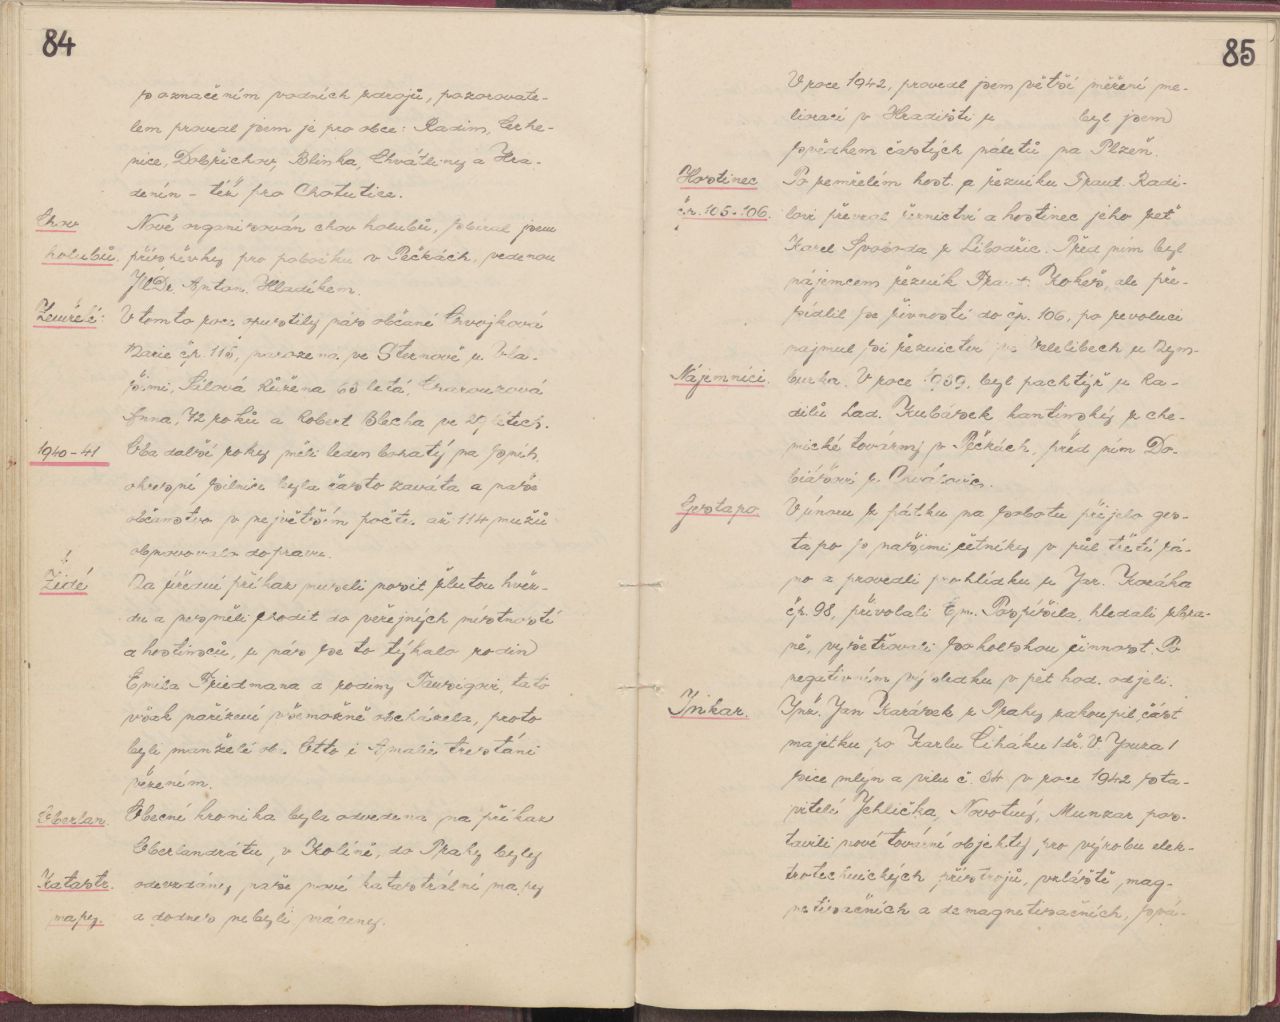 84
s označením vodních zdrojů, pozorovate-
lem provedl jsem je pro obce: Radim, Cerhe-
nice, Dobřichov, Blinka, Chvátliny a Hra-
denín - též pro Chotutice.
Chov
Nově organisován chov holubů, sbíral jsem
holubů.
příspěvky pro pobočku v Pečkách, vedenou
JUDr. Anton. Hladíkem.
Zemřelé:
V tomto roce opustily nás občané Skvojková
Marie čp. 115, narozena ve Sternově u Vla-
šimi, Šílová Růžena 63 letá, Charouzová
Anna, 72 roků a Robert Blecha ve 29 letech.
1940-41
Oba další roky měli leden bohatý na sníh,
okresní silnice byla často zaváta a naše
občanstvo v největším počtu až 114 mužů
obnovovalo dopravu.
Židé
Na úřední příkaz museli nosit žlutou hvěz-
du a nesměli chodit do veřejných místností
a hostinců, u nás se to týkalo rodin
Emila Friedmana a rodiny Taussigovi, tato
však nařízení všemožně obcházela, proto
byli manželé oba Otto i Amalie trestáni
vězením.
Oberlan.
Obecní kronika byla odvedena na příkaz
Oberlandrátu, v Kolíně, do Prahy byly
Katastr.
odevzdány naše nové katastrální mapy
mapy.
a dodnes nebyli vráceny.
85
V roce 1942, provedl jsem větší měření me-
liorací v Hradišti u byl jsem
svědkem častých náletů na Plzeň.
Hostinec
Po zemřelém host. a řezníku Frant. Radi-
čp. 105-106.
lovi převzal řeznictví a hostinec jeho zeť
Karel Svoboda z Libodřic. Před ním byl
nájemcem řezník Frant. Kokeš, ale pře-
sídlil se živností do čp. 106, po revoluci
najmul si řeznictví ve Velelibech u Nym-
Nájemníci.
burka. V roce 1939, byl pachtýř u Ra-
dilů Lad. Kubásek kantinský z che-
mické továrny v Pečkách, před ním Do-
biášovi z
Gestapo
V únoru z pátku na sobotu přijelo ges-
tapo s našimi četníky v půl třetí rá-
no a provedli prohlídku u Jar. Kozáka
čp. 98, přivolali Em. Pospíšila, hledali zbra-
ně, vyšetřovali sokolskou činnost. Po
negativním výsledku v pět hod. odjeli.
Inkar.
Inž. Jan Karásek z Prahy zakoupil část
majetku po Karlu Čiháku /dř. V. Joura/
sice mlýn a vilu č. 34 v roce 1942 sta-
vitelé Jehlička, Novotný, Munzar pos-
tavili nové tovární objekty pro výrobu elek-
trotechnických přístrojů, zvláště mag-
netisačních a demagnetisačních, spá-